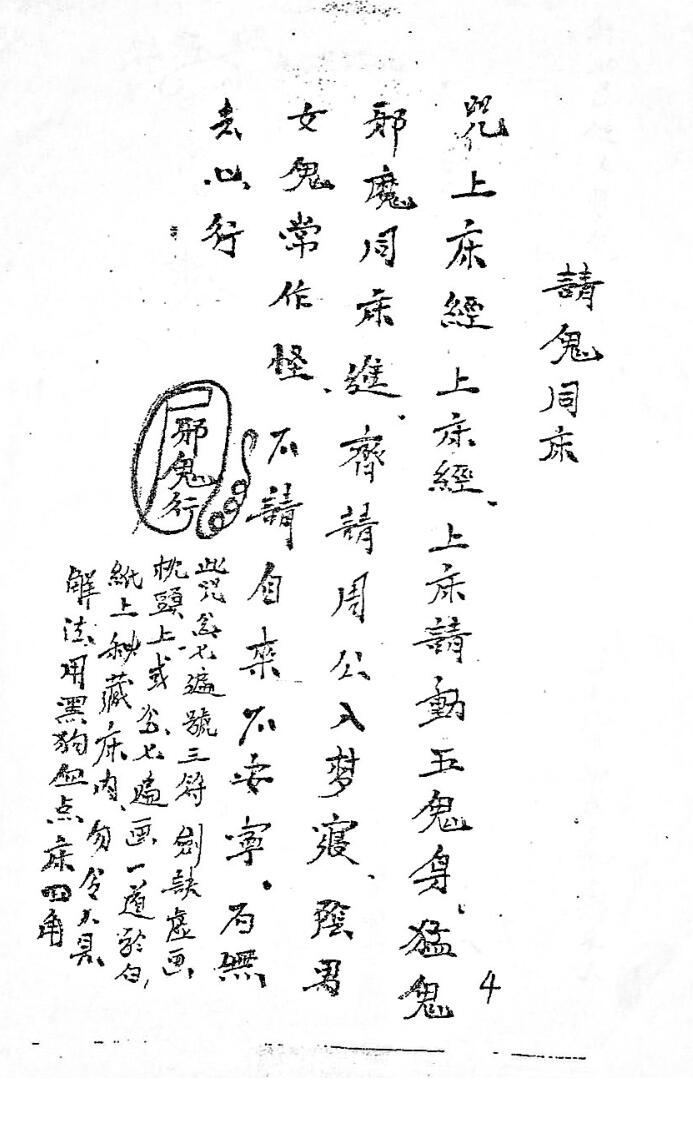 請鬼同床
咒上床經上床經、上床請動五鬼身、猛鬼
邪魔同床進、齊請周公入梦寢、陰男
女鬼常作怪、不請自來不安寧。石無
去心行
邪鬼行
此咒念七遍號三符劍訣虛画
枕頭上、或念七遍画一道於白
紙上秘藏床内、勿令人見
解法、用黑狗血点床四角
4